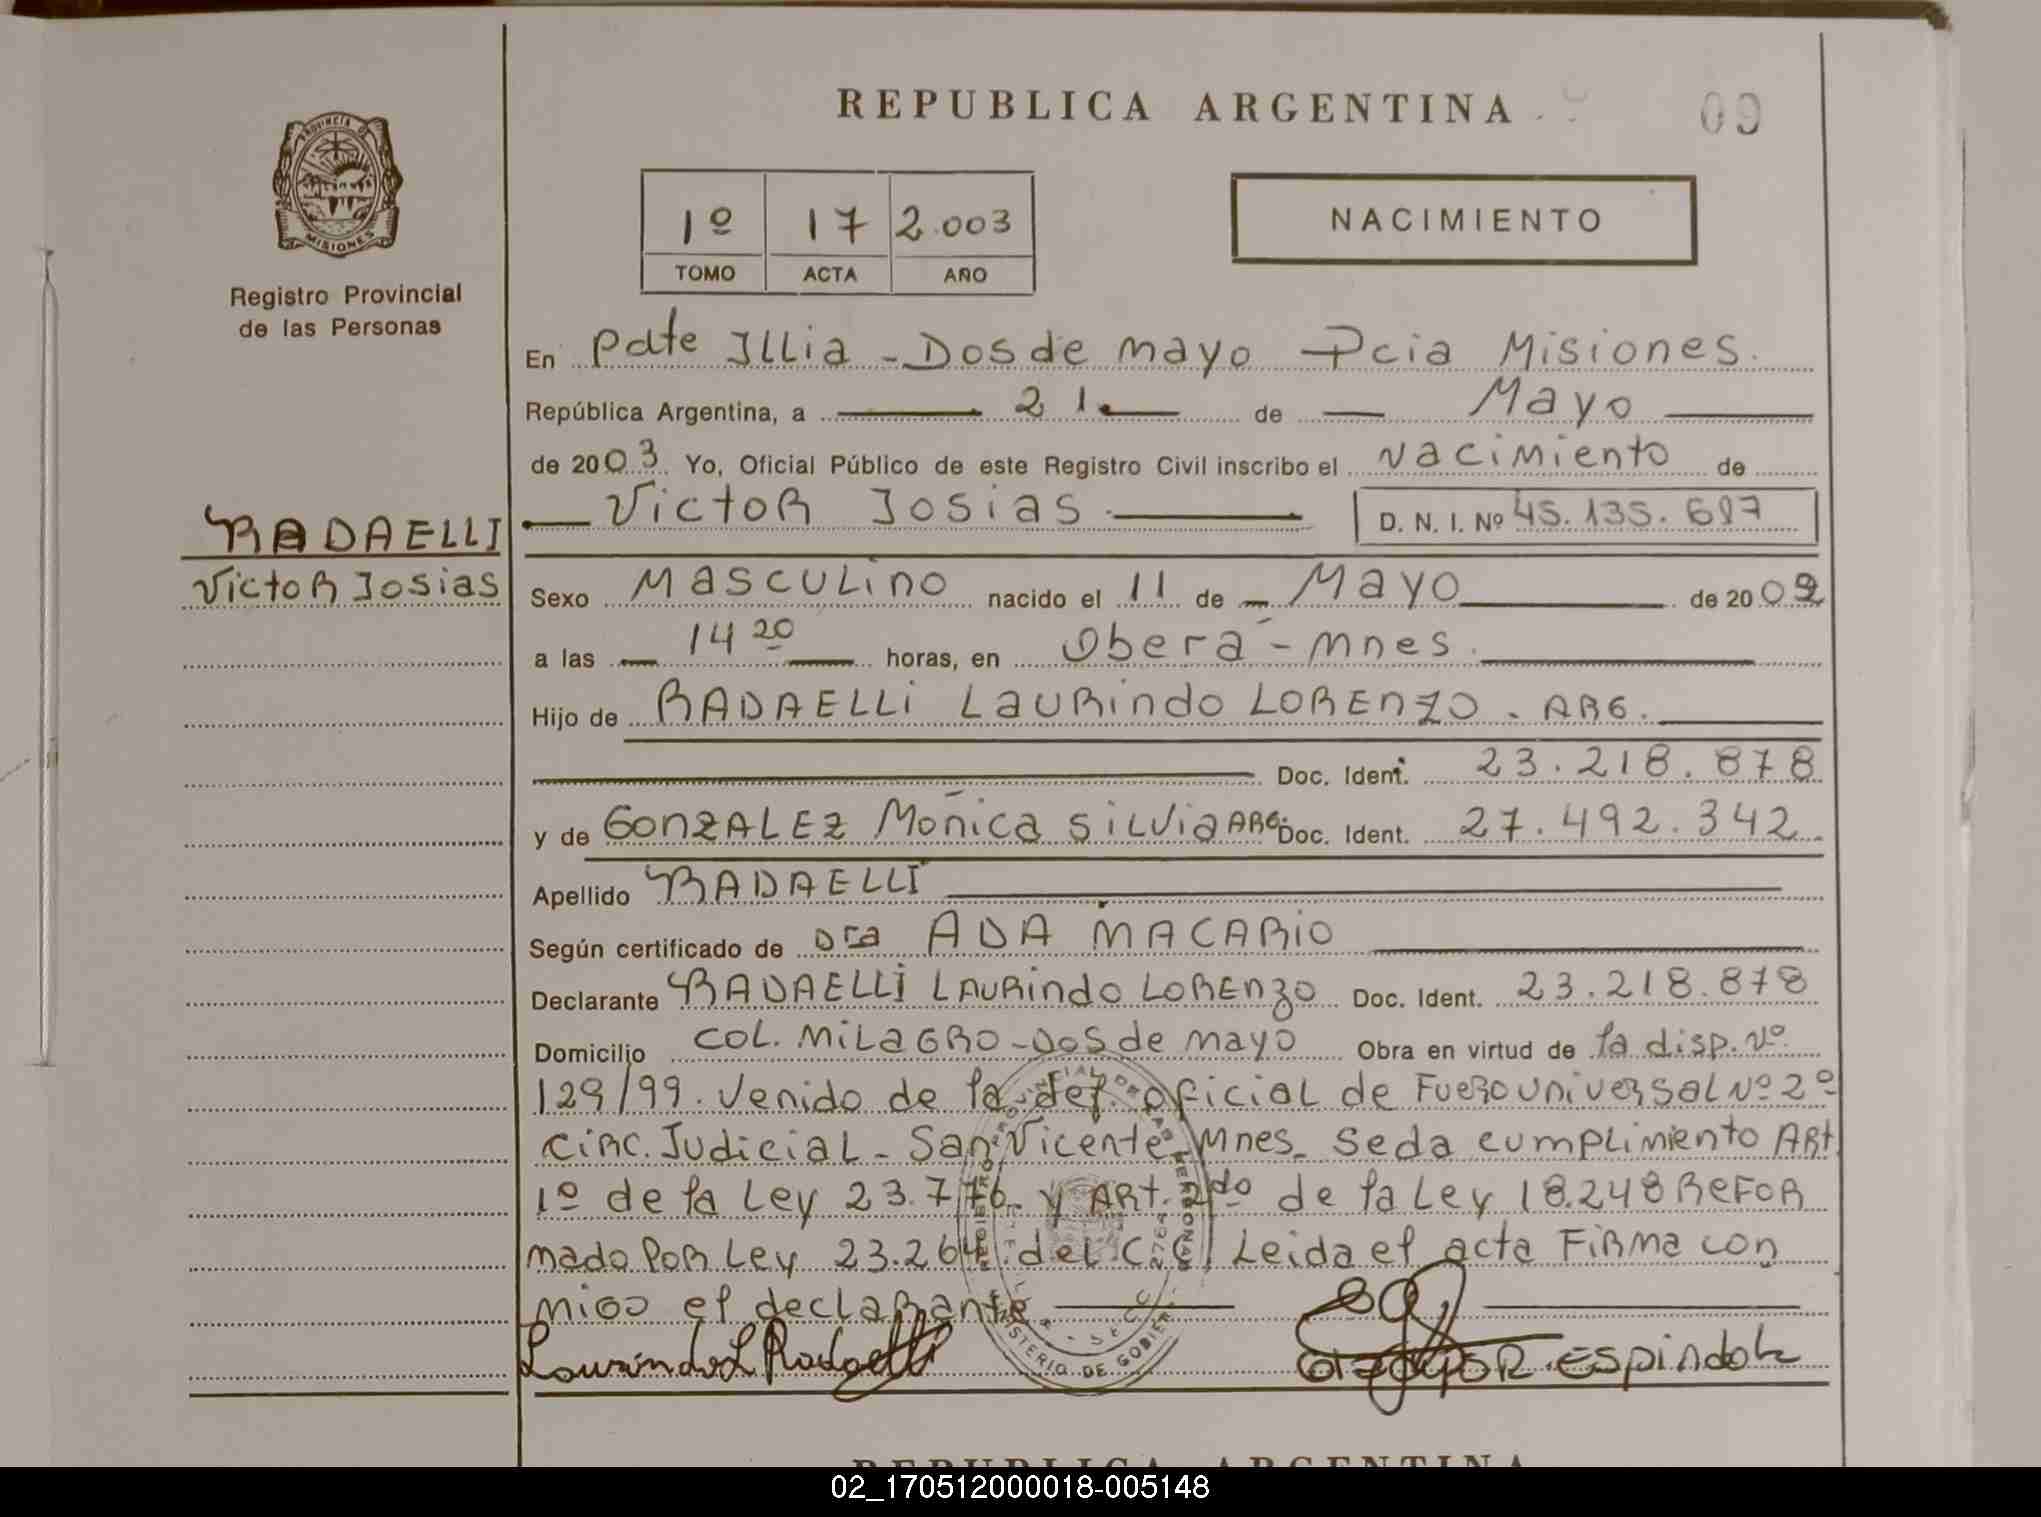 REPUBLICA ARGENTINA
09
PROVINCIA DE
MISIONES
Registro Provincial
de las Personas
1º 17 2.003
TOMO ACTA AÑO
NACIMIENTO
En Pdte Illia - Dos de mayo Pcia Misiones.
República Argentina, a 21 de Mayo
de 2003 Yo, Oficial Público de este Registro Civil inscribo el Nacimiento de
Victor Josias D. N. I. Nº 45.135.697
RADAELLI
Victor Josias
Sexo Masculino nacido el 11 de Mayo de 20
a las 14 20 horas, en Oberá - Mnes.
Hijo de RADAELLi LauRindo LORENZO. ARG.
Doc. Ident. 23.218.878
y de GONZALEZ Mónica Silvia ARG. Doc. Ident. 27.492.342
Apellido RADAELLI
Según certificado de Dra ADA MACARIO
Declarante RADAELLI LAURindo LORENZO Doc. Ident. 23.218.878
Domicilio COL. MiLAGRO - Dos de mayo Obra en virtud de la disp. Nº
129/99. Venido de la def. oficial de Fuero universal Nº 2º
Circ. Judicial - San Vicente Mnes. Se da cumplimiento Art
1º de la Ley 23.776 y ART. 2do de la Ley 18.248 Refor
mado por Ley 23.264 del C.C. Leida el acta Firma con
migo el declarante
Laurindo L Radaelli
R. Espindola
REPUBLICA ARGENTINA
02_170512000018-005148